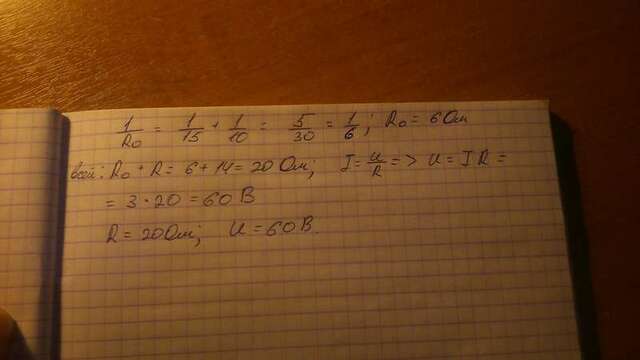 1/R₀ = 1/15 + 1/10 = 5/30 = 1/6; R₀ = 6 Ом
всей: R₀ + R = 6 + 14 = 20 Ом; I = U/R => U = IR =
= 3 · 20 = 60 В
R = 20 Ом; U = 60 В.